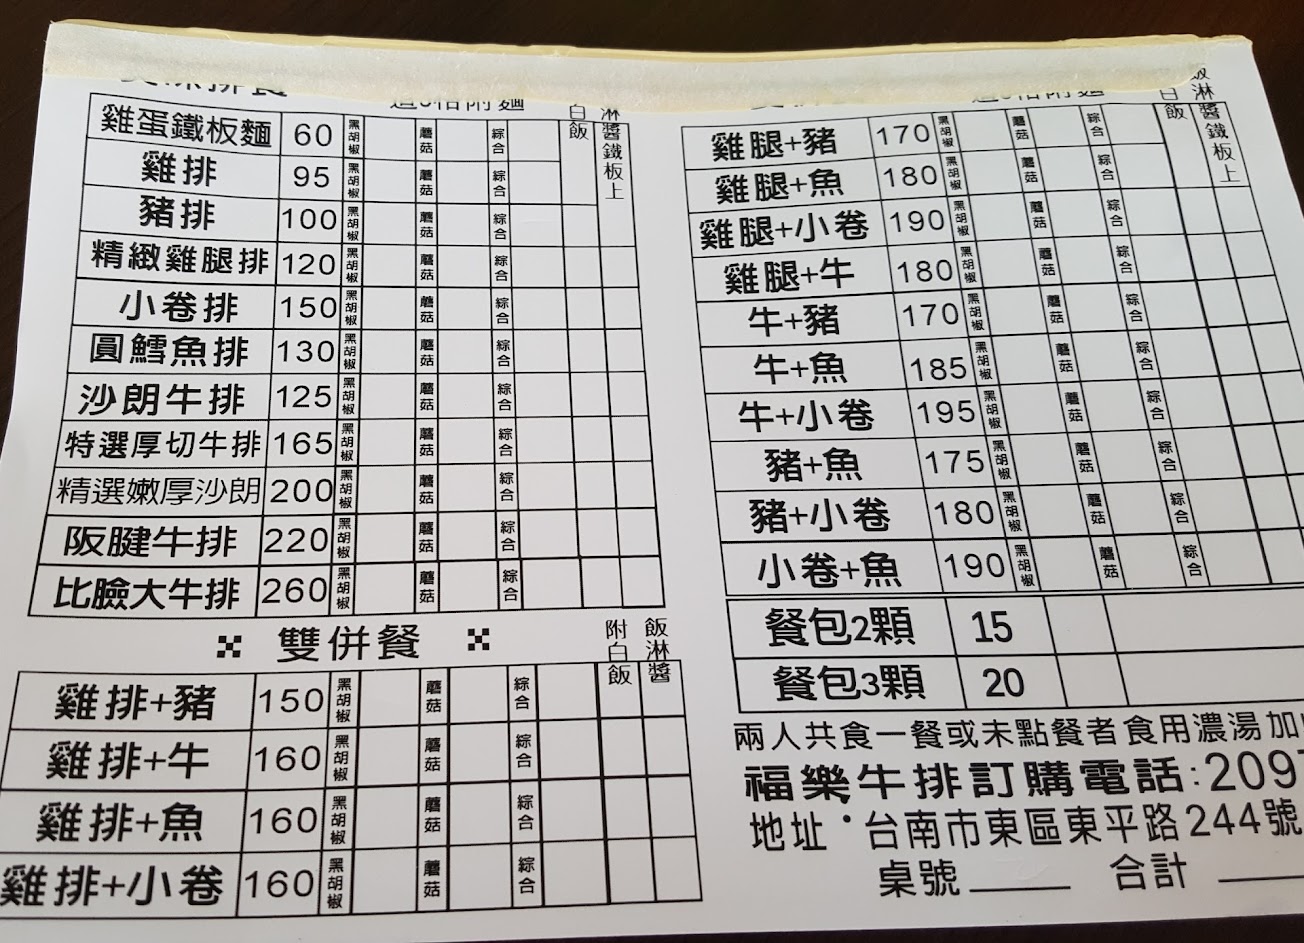 附麵
白飯
淋醬鐵板上
雞蛋鐵板麵 60 黑胡椒 蘑菇 綜合
雞排 95 黑胡椒 蘑菇 綜合
豬排 100 黑胡椒 蘑菇 綜合
精緻雞腿排 120 黑胡椒 蘑菇 綜合
小卷排 150 黑胡椒 蘑菇 綜合
圓鱈魚排 130 黑胡椒 蘑菇 綜合
沙朗牛排 125 黑胡椒 蘑菇 綜合
特選厚切牛排 165 黑胡椒 蘑菇 綜合
精選嫩厚沙朗 200 黑胡椒 蘑菇 綜合
阪腱牛排 220 黑胡椒 蘑菇 綜合
比臉大牛排 260 黑胡椒 蘑菇 綜合
雙併餐
附白飯
飯淋醬
雞排+豬 150 黑胡椒 蘑菇 綜合
雞排+牛 160 黑胡椒 蘑菇 綜合
雞排+魚 160 黑胡椒 蘑菇 綜合
雞排+小卷 160 黑胡椒 蘑菇 綜合
白飯
飯淋醬鐵板上
雞腿+豬 170 黑胡椒 蘑菇 綜合
雞腿+魚 180 黑胡椒 蘑菇 綜合
雞腿+小卷 190 黑胡椒 蘑菇 綜合
雞腿+牛 180 黑胡椒 蘑菇 綜合
牛+豬 170 黑胡椒 蘑菇 綜合
牛+魚 185 黑胡椒 蘑菇 綜合
牛+小卷 195 黑胡椒 蘑菇 綜合
豬+魚 175 黑胡椒 蘑菇 綜合
豬+小卷 180 黑胡椒 蘑菇 綜合
小卷+魚 190 黑胡椒 蘑菇 綜合
餐包2顆 15
餐包3顆 20
兩人共食一餐或未點餐者食用濃湯加
福樂牛排訂購電話:2097
地址:台南市東區東平路244號
桌號 合計